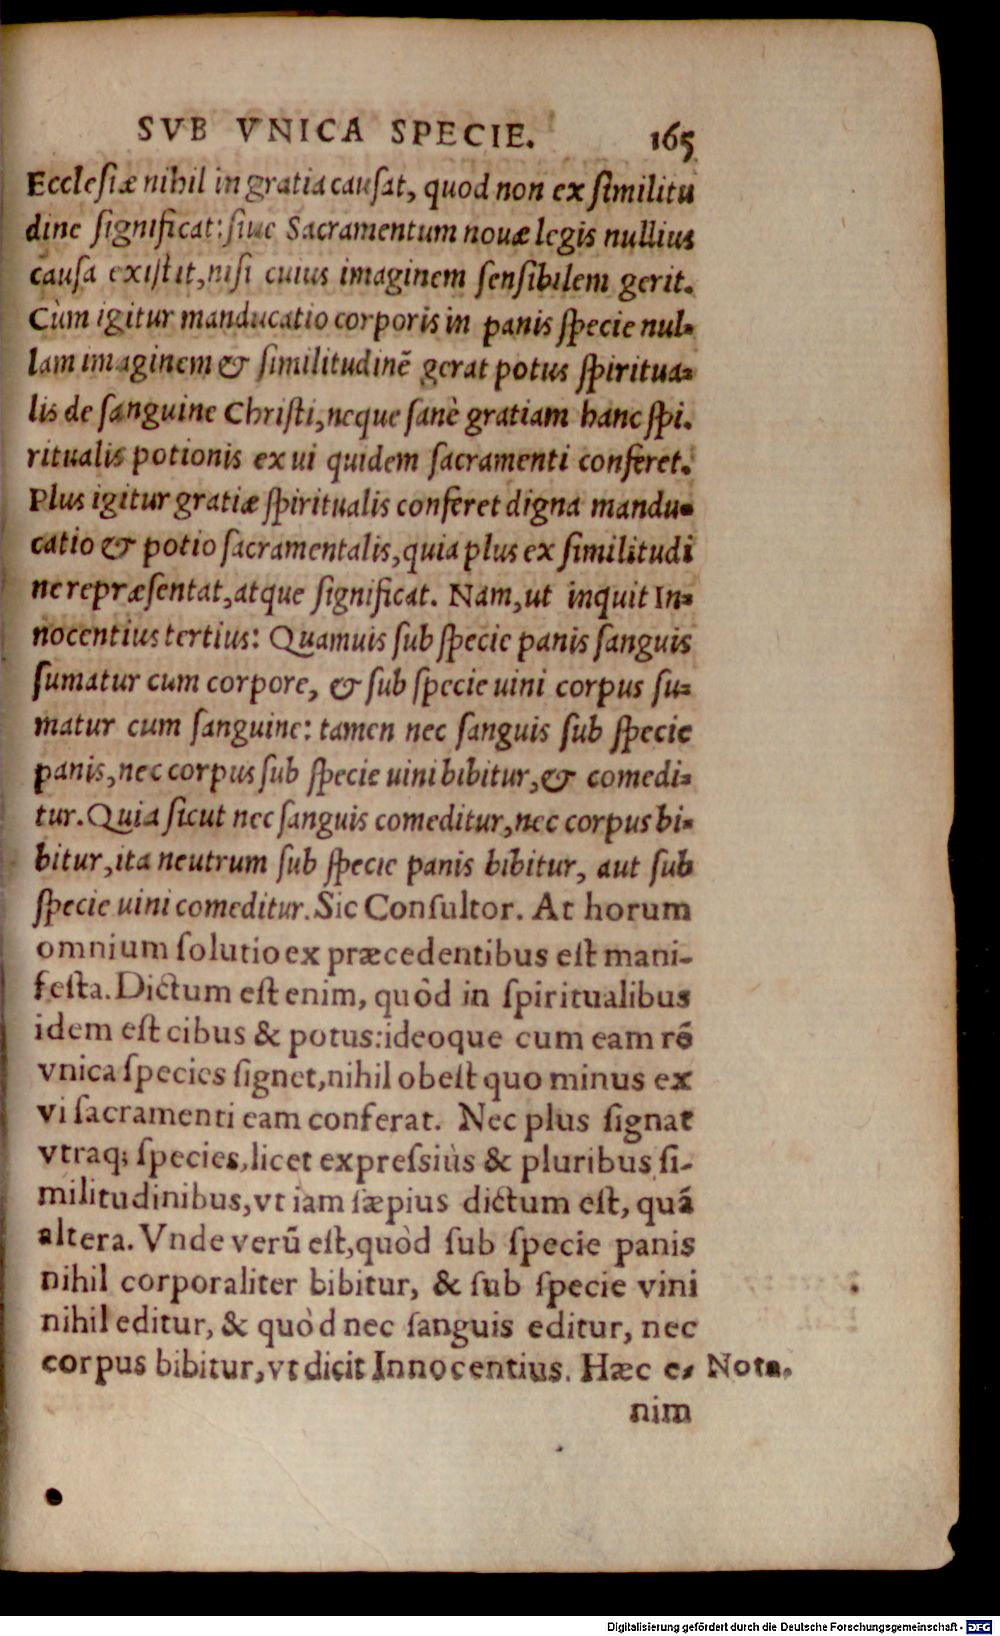 SVB VNICA SPECIE. 165
Ecclesiæ nihil in gratia causat, quod non ex similitu
dine significat: siue Sacramentum nouæ legis nullius
causa existit, nisi cuius imaginem sensibilem gerit.
Cùm igitur manducatio corporis in panis specie nul-
lam imaginem & similitudinē gerat potus spiritua-
lis de sanguine Christi, neque sanè gratiam hanc spi.
ritualis potionis ex ui quidem sacramenti conferet.
Plus igitur gratiæ spiritualis conferet digna mandu-
catio & potio sacramentalis, quia plus ex similitudi
ne repræsentat, atque significat. Nam, ut inquit In-
nocentius tertius: Quamuis sub specie panis sanguis
sumatur cum corpore, & sub specie uini corpus su-
matur cum sanguine: tamen nec sanguis sub specie
panis, nec corpus sub specie uini bibitur, & comedi-
tur. Quia sicut nec sanguis comeditur, nec corpus bi-
bitur, ita neutrum sub specie panis bibitur, aut sub
specie uini comeditur. Sic Consultor. At horum
omnium solutio ex præcedentibus est mani-
festa. Dictum est enim, quòd in spiritualibus
idem est cibus & potus: ideoque cum eam rē
vnica species signet, nihil obest quo minus ex
vi sacramenti eam conferat. Nec plus signat
vtraq; species, licet expressiùs & pluribus si-
militudinibus, vt iam sæpius dictum est, quā
altera. Vnde verū est, quòd sub specie panis
nihil corporaliter bibitur, & sub specie vini
nihil editur, & quòd nec sanguis editur, nec
corpus bibitur, vt dicit Innocentius. Hæc e- Nota.
nim
Digitalisierung gefördert durch die Deutsche Forschungsgemeinschaft - DFG